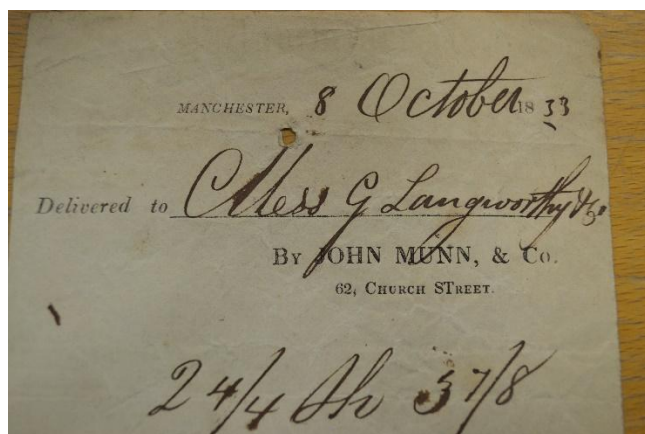 MANCHESTER, 8 October 1833
Delivered to Mess G Langworthy & Co
By JOHN MUNN, & Co.
62, CHURCH STREET.
24/4 37/8